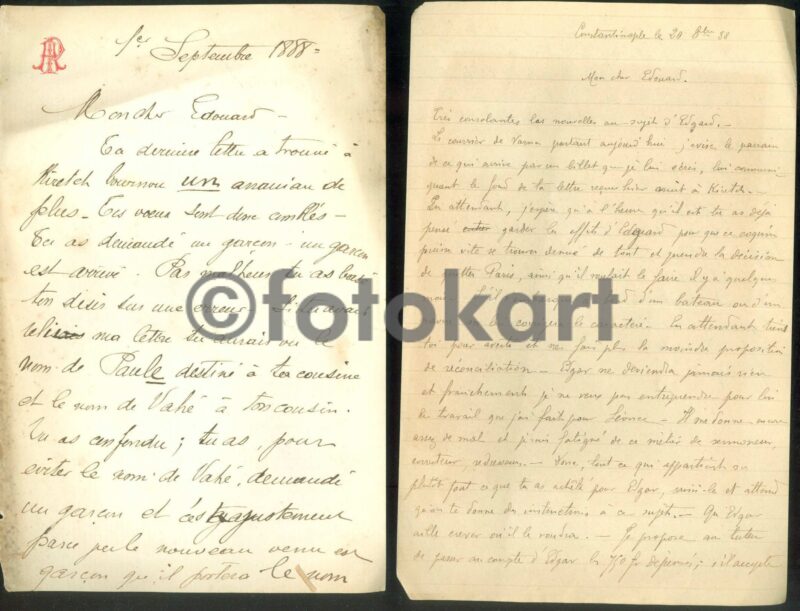 R
1er Septembre 1888
Mon cher Edouard –
Ta dernière lettre a trouvé à
Kiretch bournou un ananian de
plus – Tes voeux sont donc comblés –
Tu as demandé un garçon – un garçon
est arrivé. Par malheur tu as basé
ton désir sur une erreur. Si tu avais
ma lettre tu aurais vu le
nom de Paule destiné à ta cousine
et le nom de Vahé à ton cousin.
Tu as confondu ; tu as, pour
éviter le nom de Vahé, demandé
un garçon et justement
parce que le nouveau venu est
garçon qu'il portera le nom
Constantinople le 20 8bre 88
Mon cher Edouard.
Très consolantes les nouvelles au sujet d'Edgard. –
Le courrier de Varna partant aujourd'hui j'avise le parrain
de ce qui arrive par un billet que je lui communi
quant le fond de la lettre reçue hier
En attendant, j'espère qu'à l'heure qu'il est tu as déjà
pensé garder les effets d'Edgard pour que ce coquin
puisse vite se trouver dénué de tout et prendre la décision
de quitter Paris, ainsi qu'il voulait le faire il y a quelques
d'un bateau ou d'un
le caractère. En attendant tiens
toi pour averti et ne fais plus la moindre proposition
de réconciliation – Edgar ne deviendra jamais rien
et franchement je ne veux pas entreprendre pour lui
le travail que j'ai fait pour Léonce – Il me donne encore
assez de mal et je suis fatigué de ce métier de sermoneur,
– Donc, tout ce qui appartient ou
plutôt tout ce que tu as acheté pour Edgar, et attend
qu'on te donne des instructions à ce sujet. – Qu'Edgar
aille crever où il le voudra. – Je propose au tuteur
de passer au compte d'Edgar les 750 fr ; s'il accepte
©fotokart